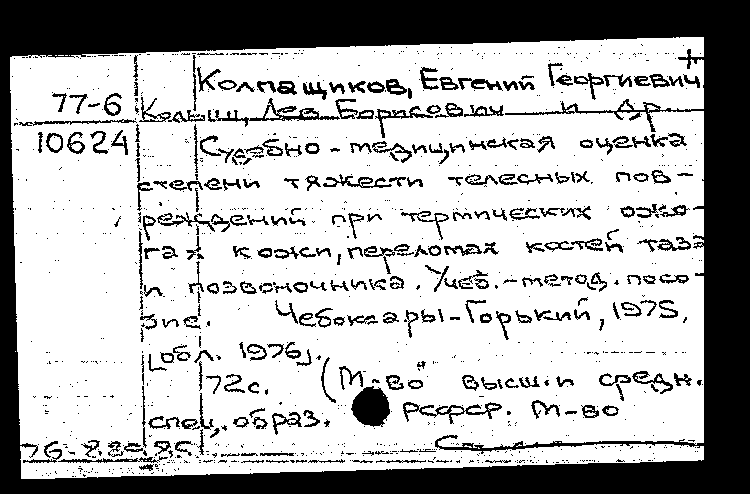 Колпащиков, Евгений Георгиевич
77-6
Лев Борисович и др.
10624
Судебно-медицинская оценка
степени тяжести телесных пов-
реждений при термических ожо-
гах кожи, переломах костей таза
и позвоночника. Учеб.-метод. посо-
бие. Чебоксары-Горький, 1975,
[обл. 1976].
72с. (М-во высш. и средн.
спец. образ. РСФСР. М-во